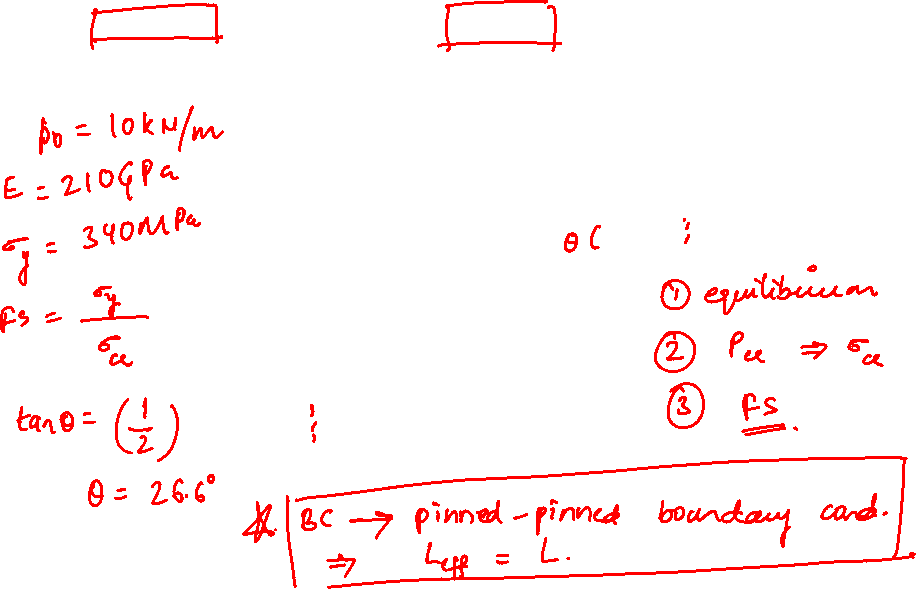 p₀ = 10kN/m
E = 210GPa
σy = 340MPa
FS = σy / σce
tanθ = (1/2)
θ = 26.6°
θ C :
① equilibrium
② Pce ⇒ σce
③ FS.
☆ BC → pinned-pinned boundary cond.
⇒ Leff = L.